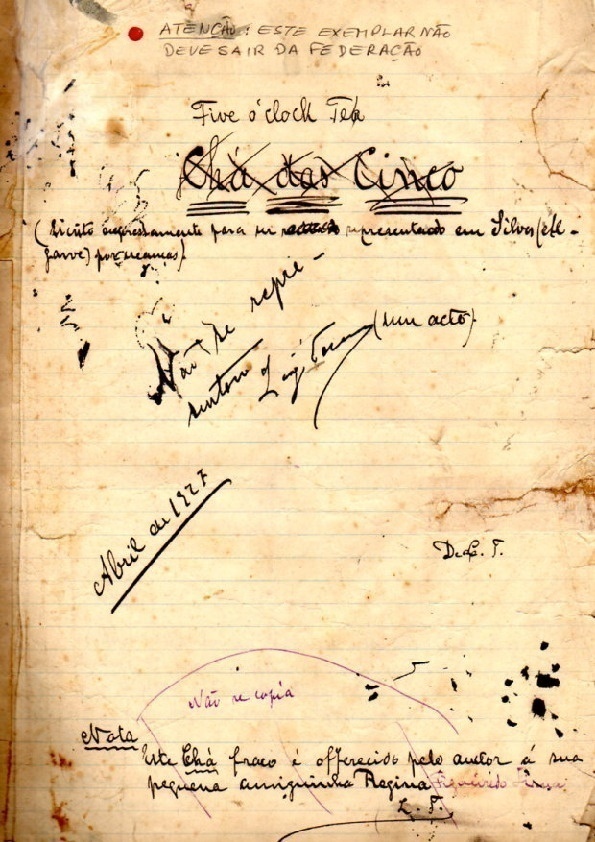 ATENÇÃO: ESTE EXEMPLAR NÃO
DEVE SAIR DA FEDERAÇÃO
Five o'clock Tea
Chá das Cinco
(Escrito expressamente para ser representado em Silves (Al-
garve) por creanças).
Não se repre-
sentou
(num acto).
Abril de 1927
De L. T.
Não se copia
Nota
Este Chá fraco é offerecido pelo auctor á sua
pequena amiguinha Regina
L. T.